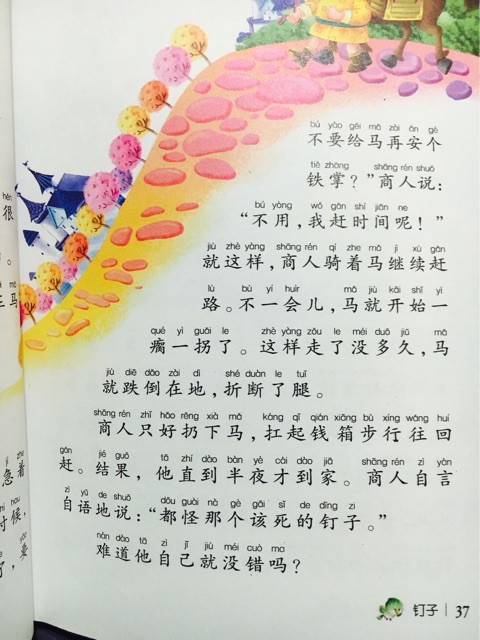 bú yào gěi mǎ zài ān gè
不要给马再安个
tiě zhǎng shāng rén shuō
铁掌？”商人说：
bú yòng wǒ gǎn shí jiān ne
“不用，我赶时间呢！”
jiù zhè yàng shāng rén qí zhe mǎ jì xù gǎn
就这样，商人骑着马继续赶
lù bù yí huìr mǎ jiù kāi shǐ yì
路。不一会儿，马就开始一
qué yì guǎi le zhè yàng zǒu le méi duō jiǔ mǎ
瘸一拐了。这样走了没多久，马
jiù diē dǎo zài dì shé duàn le tuǐ
就跌倒在地，折断了腿。
shāng rén zhǐ hǎo rēng xià mǎ káng qǐ qián xiāng bù xíng wǎng huí
商人只好扔下马，扛起钱箱步行往回
gǎn jié guǒ tā zhí dào bàn yè cái dào jiā shāng rén zì yán
赶。结果，他直到半夜才到家。商人自言
zì yǔ de shuō dōu guài nà gè gāi sǐ de dīng zi
自语地说：“都怪那个该死的钉子。”
nán dào tā zì jǐ jiù méi cuò ma
难道他自己就没错吗？
钉子 37
hěn
很
。
mǎ
三马
jí zhe
急着
shí hou
时候，
le yào
了，要